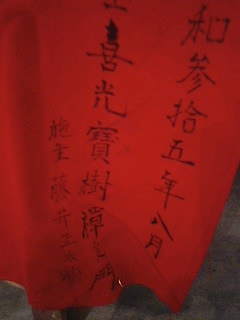 和参拾五年八月
喜光寳樹潭之門
施主 藤井正太郎